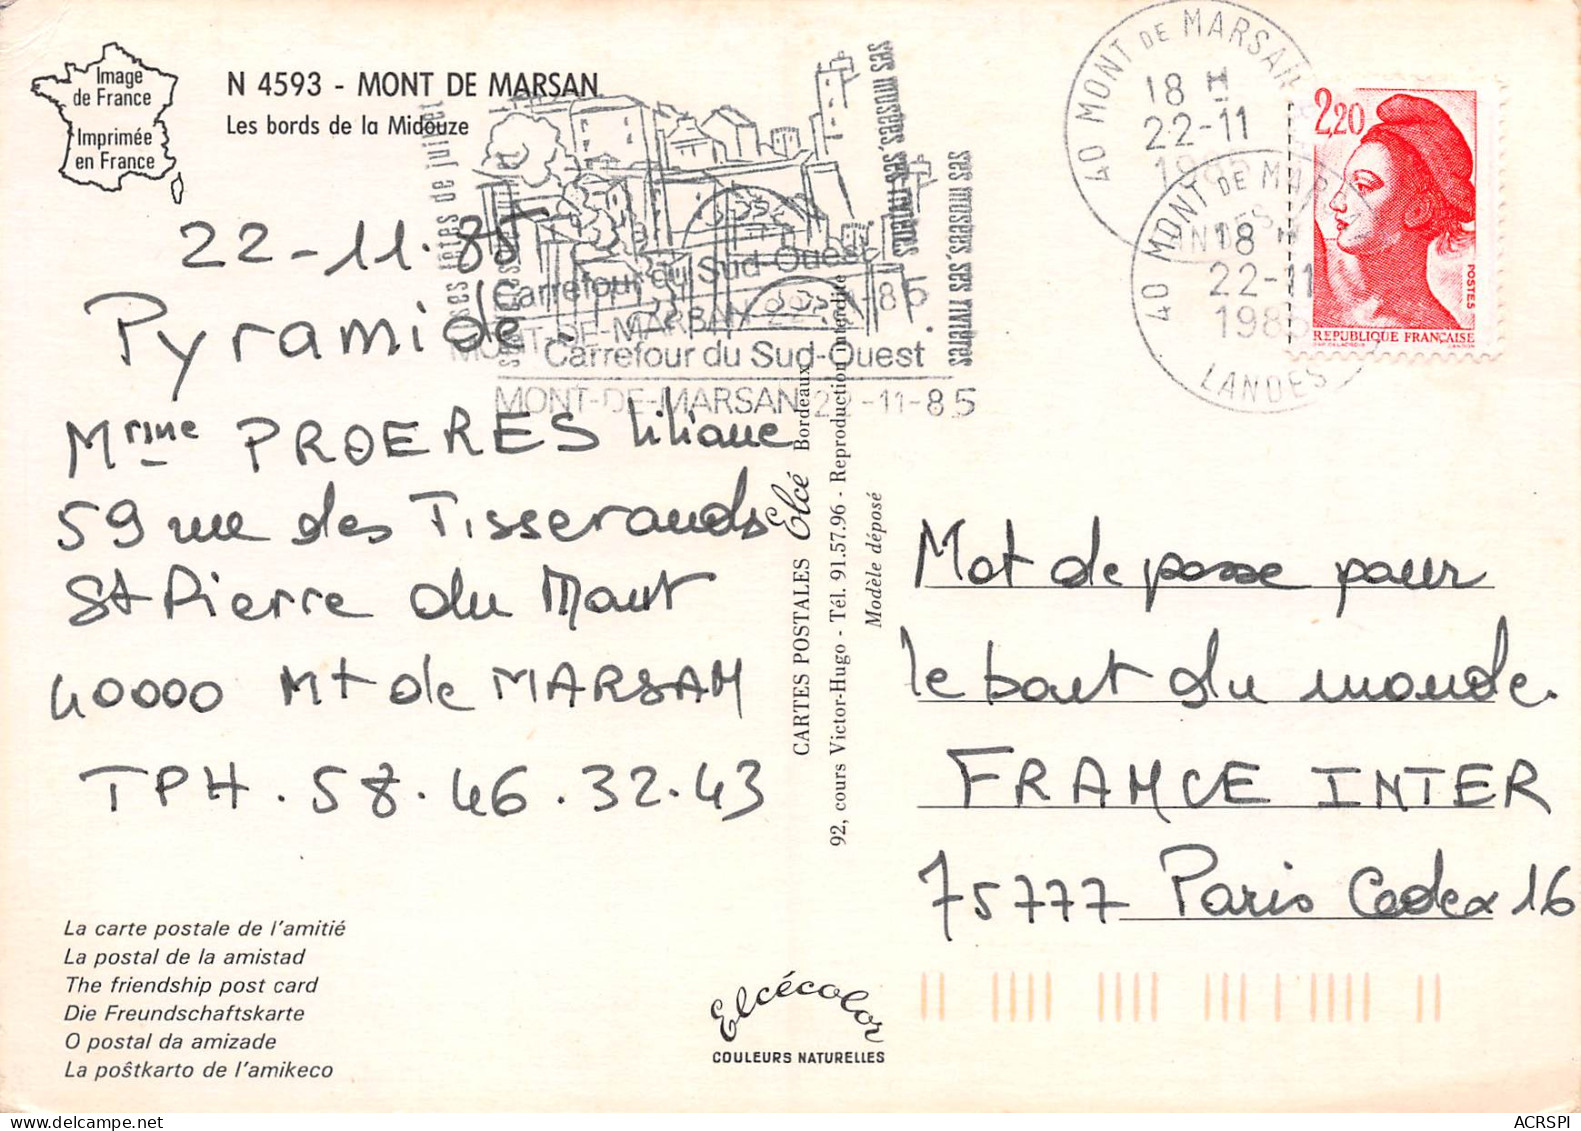 Image
de France
Imprimée
en France
N 4593 - MONT DE MARSAN
Les bords de la Midouze
22-11.85
Pyramide.
Mme PROERES Liliane
59 rue des Tisserands
St Pierre du Mont
40000 Mt de MARSAN
TPH. 58.46.32.43
La carte postale de l'amitié
La postal de la amistad
The friendship post card
Die Freundschaftskarte
O postal da amizade
La poŝtkarto de l'amikeco
ses fêtes de juillet
ses musées, ses rivières
ses musées, ses rivières
Carrefour du Sud-Ouest
MONT-DE-MARSAN 22-11-85
Carrefour du Sud-Ouest
MONT-DE-MARSAN 22-11-85
CARTES POSTALES Elcé Bordeaux
92, cours Victor-Hugo - Tél. 91.57.96 - Reproduction interdite
Modèle déposé
Elcécolor
COULEURS NATURELLES
40 MONT DE MARSAN
18 H
22-11
40 MONT DE MAR
18 H
22-11
1985
LANDES
2,20
POSTES
REPUBLIQUE FRANÇAISE
Mot de passe pour
le bout du monde.
FRANCE INTER
75777 Paris Cedex 16
ACRSPI